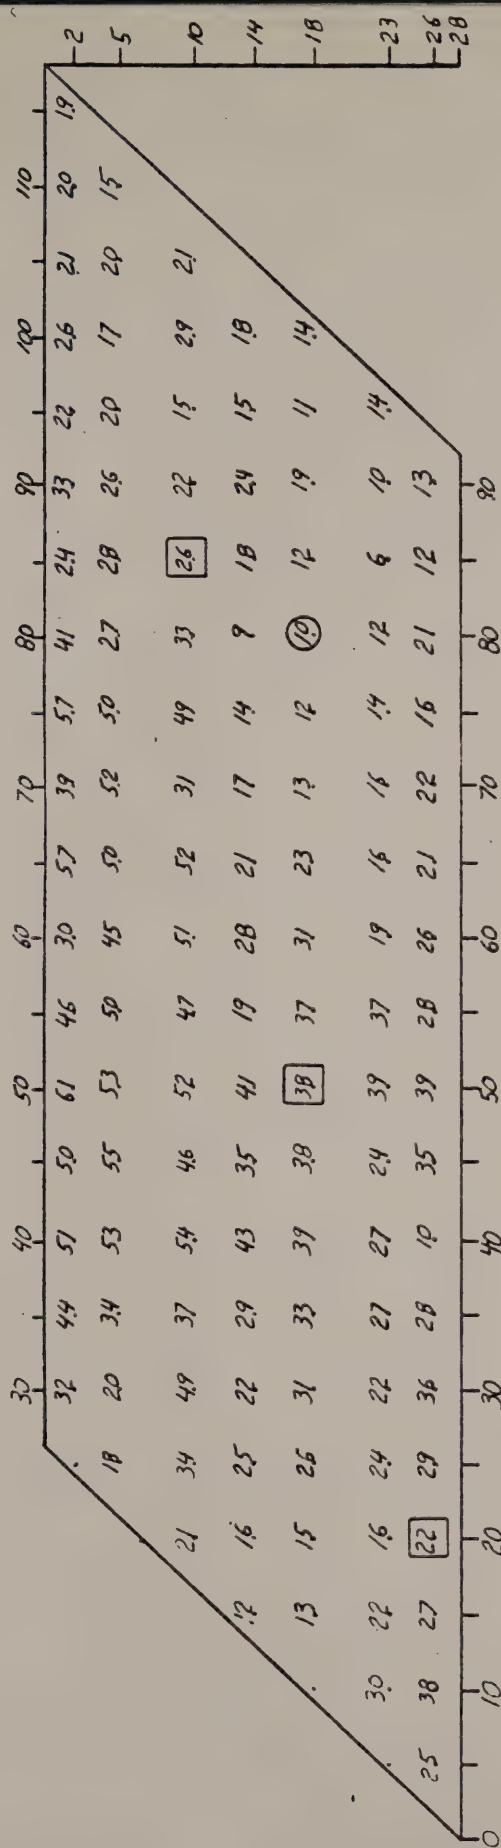 30 40 50 60 70 80 90 100 110
32 44 51 50 61 46 30 57 39 57 41 24 33 22 26 21 20 19 2
18 20 34 53 55 53 50 45 50 52 50 27 28 26 20 17 20 15 5
21 34 49 37 54 46 52 47 51 52 31 49 33 26 22 15 29 21 10
12 16 25 22 29 43 35 41 19 28 21 17 14 9 18 24 15 18 14
13 15 26 31 33 39 38 38 37 31 23 13 12 10 12 19 11 14 18
30 22 16 24 22 27 27 24 39 37 19 16 16 14 12 6 10 14 23
25 38 27 22 29 36 28 10 35 39 28 26 21 22 16 21 12 13 26
28
0 10 20 30 40 50 60 70 80 90